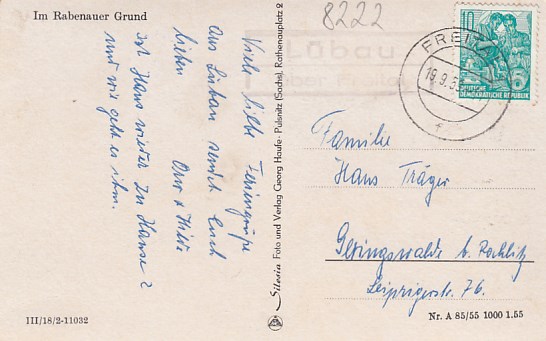 Im Rabenauer Grund
Viele liebe Feriengrüße
aus Lübau sendet Euch
lieben
Ist Hans wieder zu Hause?
und wie geht es ihm.
III/18/2-11032
Silesia Foto und Verlag Georg Haufe · Pulsnitz (Sachs), Rathenauplatz 2
8222
Lübau
FREITAL
19.9.5
10
DEUTSCHE
DEMOKRATISCHE REPUBLIK
Familie
Hans Träger
Geringswalde b. Rochlitz
Leipzigerstr. 76.
Nr. A 85/55 1000 1.55